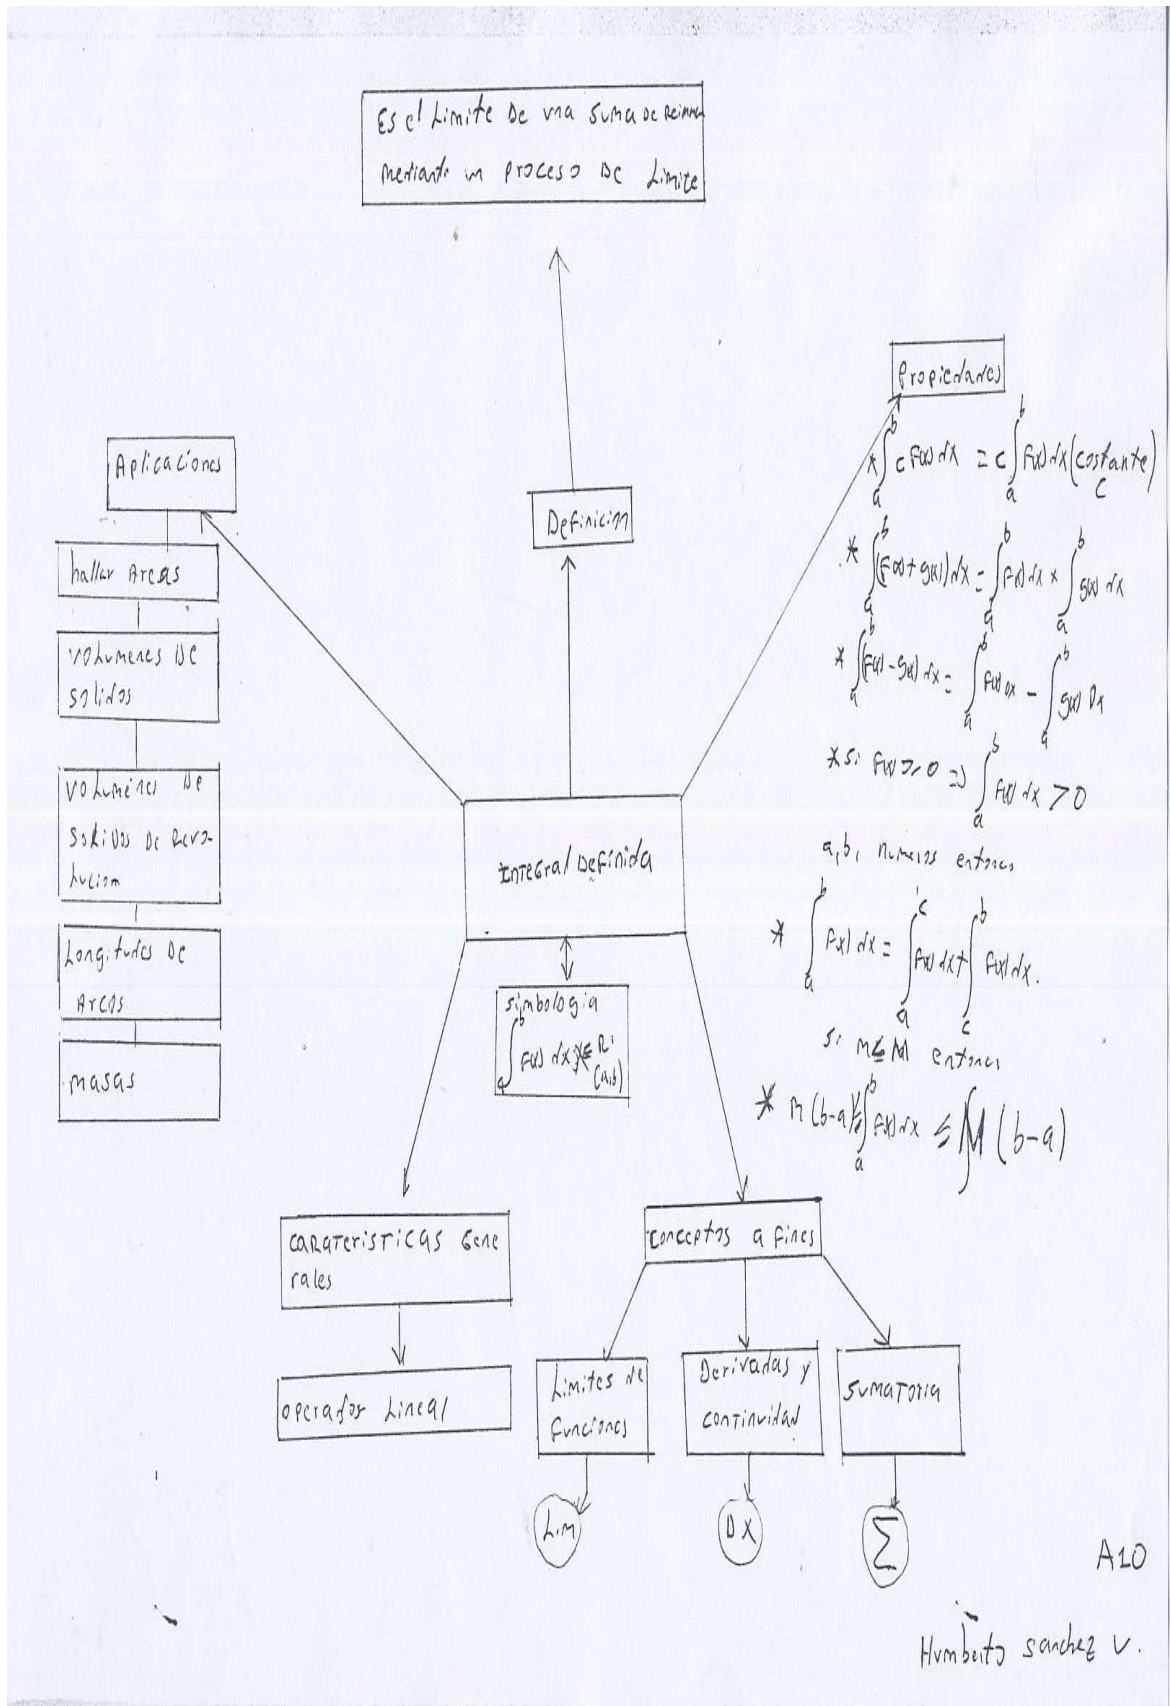 Es el Limite De una suma De Reimman
mediante un proceso De Limite
Propiedades
* ∫_a^b c F(x) dx = c ∫_a^b F(x) dx (costante)
c
* ∫_a^b (F(x) + g(x)) dx = ∫_a^b F(x) dx × ∫_a^b g(x) dx
* ∫_a^b (F(x) - g(x)) dx = ∫_a^b F(x) Dx - ∫_a^b g(x) Dx
* si F(x) ≥ 0 => ∫_a^b F(x) dx > 0
a, b, numeros entonces
* ∫_a^b F(x) dx = ∫_a^c F(x) dx + ∫_c^b F(x) dx.
si m ≤ M entonces
* m (b-a) ≤ ∫_a^b F(x) dx ≤ M (b-a)
Aplicaciones
hallar Areas
Volumenes De
solidos
Volumenes De
Solidos De Revo-
lucion
Longitudes De
Arcos
masas
Definición
Integral Definida
simbologia
∫_a^b F(x) dx; x ∈ R;
(a,b)
CARATERISTICAS Gene
rales
operador Lineal
conceptos a fines
Limites de
Funciones
Lim
Derivadas y
continuidad
DX
sumatoria
Σ
A10
Humberto Sanchez V.